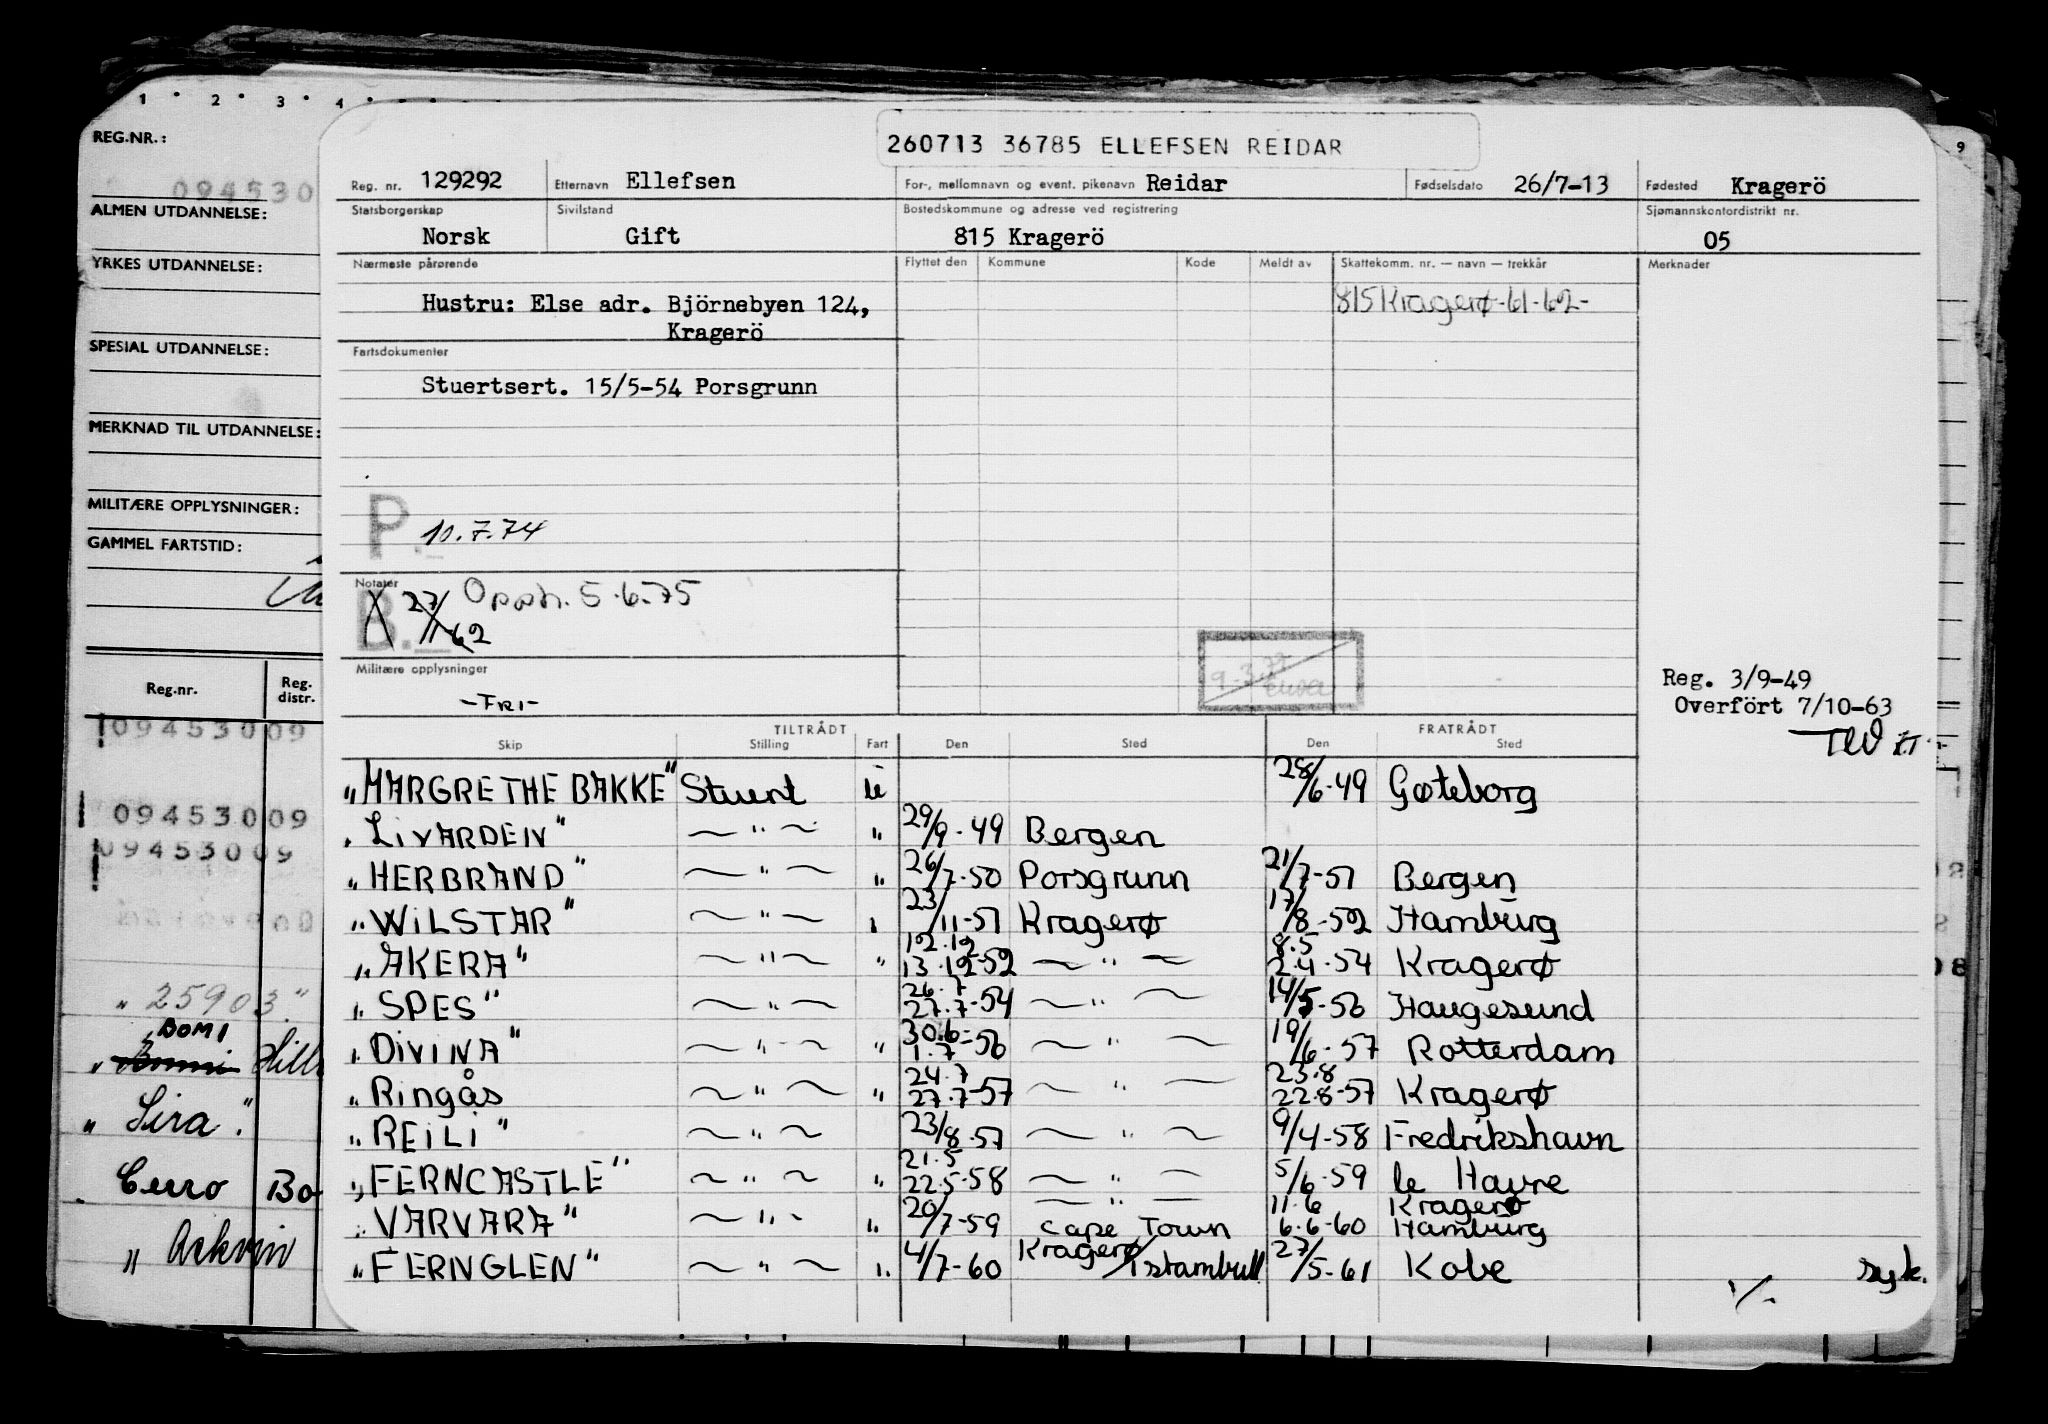 1 · 2 · 3 · 4 ·
9
REG.NR.:
094530
ALMEN UTDANNELSE:
YRKES UTDANNELSE:
SPESIAL UTDANNELSE:
MERKNAD TIL UTDANNELSE:
MILITÆRE OPPLYSNINGER:
GAMMEL FARTSTID:
Reg.nr. Reg. distr.
09453009
09453009
09453009
" 25903."
BOMI
" Bommi
" Sira."
Cerro Bo
260713 36785 ELLEFSEN REIDAR
Reg. nr. 129292 Etternavn Ellefsen For-, mellomnavn og event. pikenavn Reidar Fødselsdato 26/7-13 Fødested Kragerö
Statsborgerskap Sivilstand Bostedskommune og adresse ved registrering Sjømannskontordistrikt nr.
Norsk Gift 815 Kragerö 05
Nærmeste pårørende Flyttet den Kommune Kode Meldt av Skattekomm. nr. — navn — trekkår Merknader
Hustru: Else adr. Björnebyen 124, 815 Kragerø-61-62-
Kragerö
Fartsdokumenter
Stuertsert. 15/5-54 Porsgrunn
P. 10.7.74
Notater
B. 27/11 62 Oppdr. 5.6.75
Militære opplysninger
-FRI-
9-3.77
Reg. 3/9-49
Overfört 7/10-63
TILTRÅDT FRATRÅDT
Skip Stilling Fart Den Sted Den Sted
"MARGRETHE BAKKE" Stuert u 28/6-49 Gøteborg
"LIVARDEN" — " — " 29/9-49 Bergen
"HERBRAND" — " — " 26/7-50 Porsgrunn 21/7-51 Bergen
"WILSTAR" — " — " 23/11-51 Kragerø 17/8-52 Hamburg
12.12 8.5
"AKERA" — " — " 13.12-52 — " — 2.4-54 Kragerø
26.7
"SPES" — " — 27.7-54 — " — 14/5-56 Haugesund
30.6-
"DIVINA" — " — " 1.7-56 — " — 19/6-57 Rotterdam
24.7 23.8
"Ringås — " — " 27.7-57 — " — 22.8-57 Kragerø
"REILI" — " — 23/8-57 — " — 9/4-58 Fredrikshavn
21.5
"FERNCASTLE" — " — " 22.5-58 — " — 5/6-59 le Havre
— " — 11.6 Kragerø
"VARVARA" — " — " 20/7-59 Cape Town 6.6-60 Hamburg
"FERNGLEN" — " — " 4/7-60 Kragerø/Istambull 27/5-61 Kobe syk.